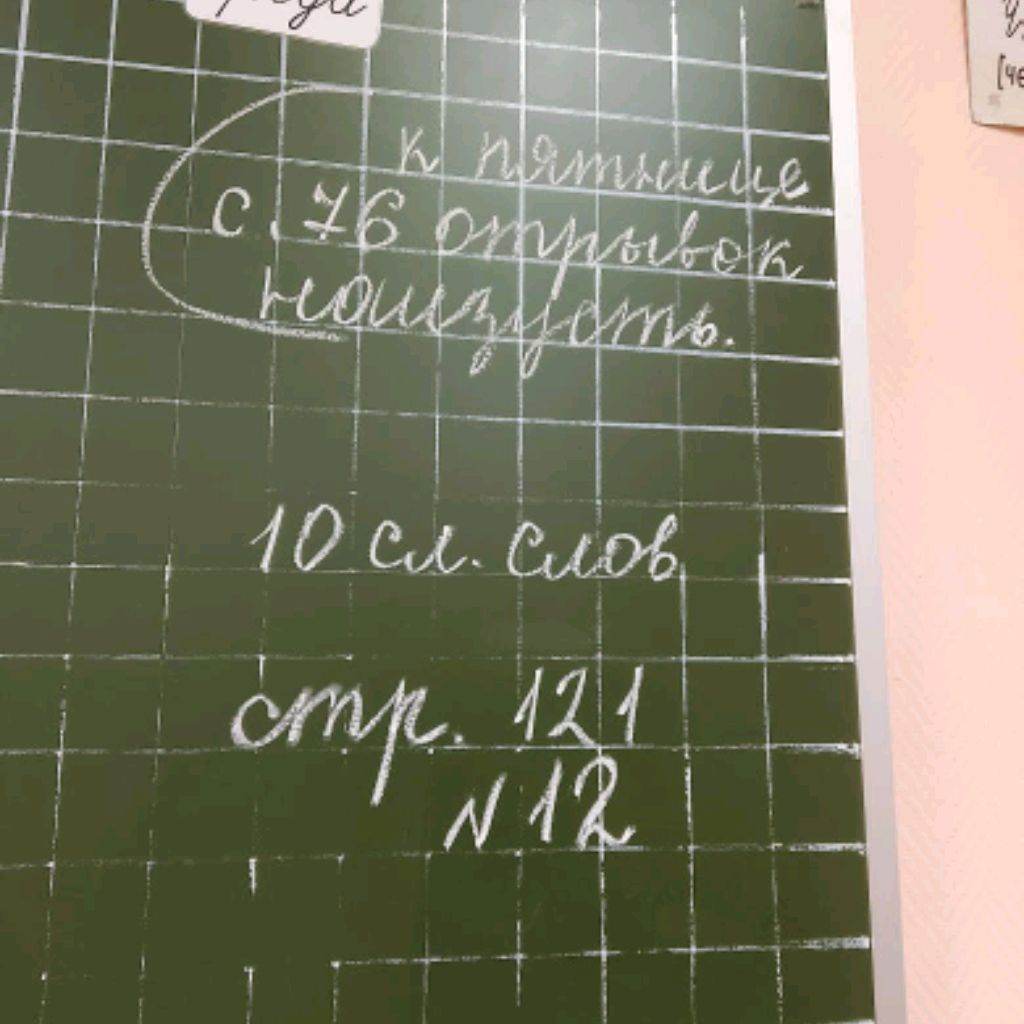 к пятнице
с. 76 отрывок
наизусть.
10 сл. слов
стр. 121
N 12